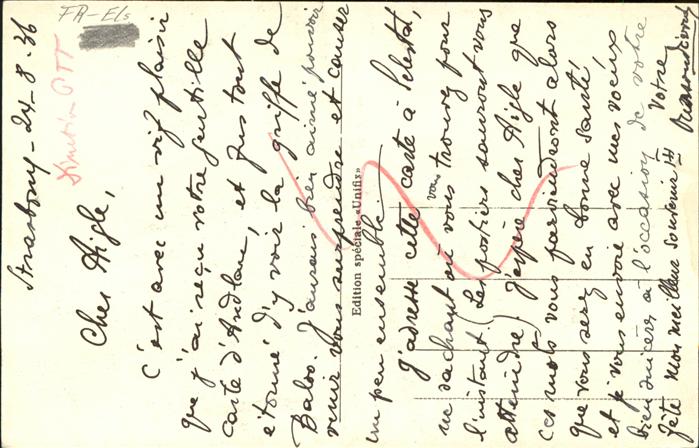 FR-Els
Strasbourg - 24-8-36
Direction PTT
Cher Aigle,
C'est avec un vif plaisir
que j'ai reçu votre gentille
carte d'Andlau, et fus tout
étonné d'y voir la griffe de
Baloo. J'aurais bien aimé pouvoir
venir vous surprendre et causer
un peu ensemble.
J'adresse cette carte à Sélestat,
ne sachant où vous vous trouvez pour
l'instant (Les postiers sauront vous
atteindre). J'espère cher Aigle que
ces mots vous parviendront alors
que vous serez en bonne santé
et je vous envoie avec mes voeux
bien sincères à l'occasion de votre
fête mon meilleur souvenir
Votre
Edition spéciale «Unifix»